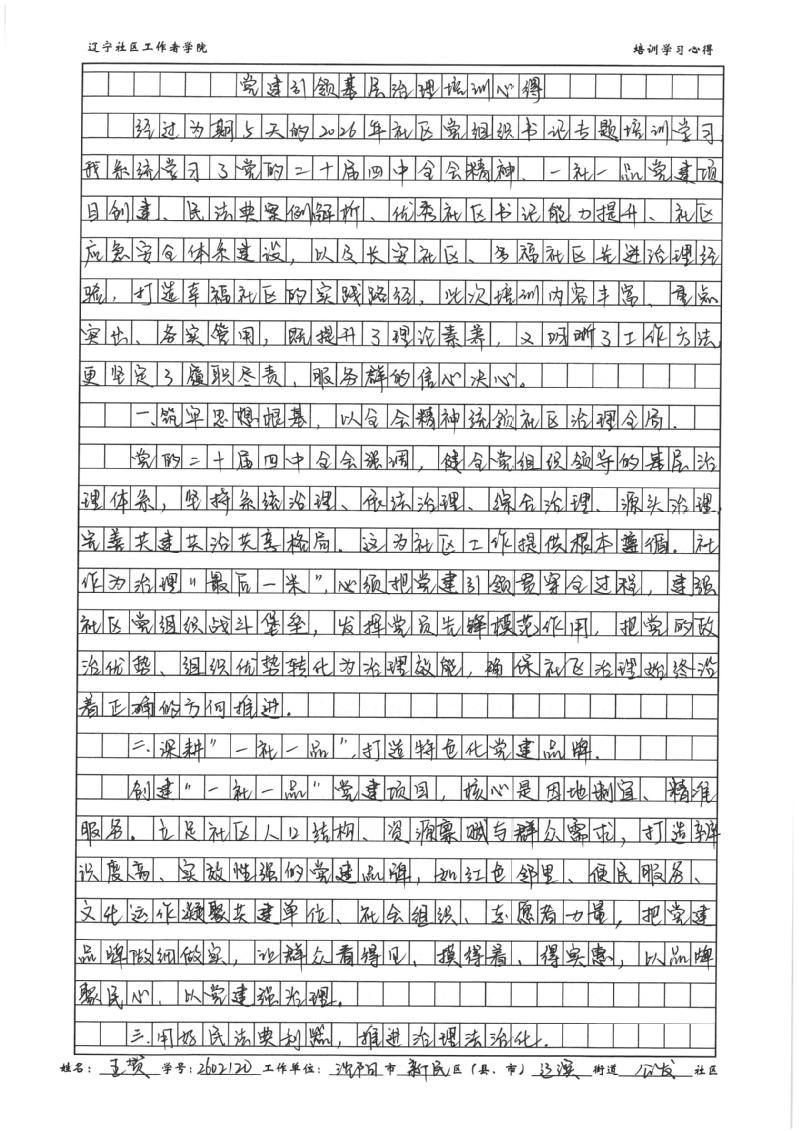 辽宁社区工作者学院 培训学习心得
党建引领基层治理培训心得
经过为期5天的2026年社区党组织书记专题培训学习
我系统学习了党的二十届四中全会精神、一社一品党建项
目创建、民法典案例解析、优秀社区书记能力提升、社区
应急安全体系建设，以及长安社区、多福社区先进治理经
验，打造幸福社区的实践路径，此次培训内容丰富、重点
突出、务实管用，既提升了理论素养，又明晰了工作方法，
更坚定了履职尽责，服务群的信心决心。
一、筑牢思想根基，以全会精神统领社区治理全局.
党的二十届四中全会强调，健全党组织领导的基层治
理体系，坚持系统治理、依法治理、综合治理、源头治理，
完善共建共治共享格局.这为社区工作提供根本遵循。社
作为治理“最后一米”，必须把党建引领贯穿全过程，建强
社区党组织战斗堡垒，发挥党员先锋模范作用，把党的政
治优势、组织优势转化为治理效能，确保社区治理始终沿
着正确的方向推进.
二.深耕“一社一品”，打造特色化党建品牌.
创建“一社一品”党建项目，核心是因地制宜、精准
服务.立足社区人口结构、资源禀赋与群众需求，打造辨
识度高、实效性强的党建品牌，如红色邻里、便民服务、
文化运作凝聚共建单位、社会组织、志愿者力量，把党建
品牌做细做实，让群众看得见、摸得着、得实惠，以品牌
聚民心、以党建强治理.
三.用好民法典利器，推进治理法治化.
姓名：王 学号：2602120 工作单位：沈阳市 新民区（县、市）辽滨 街道 公发 社区